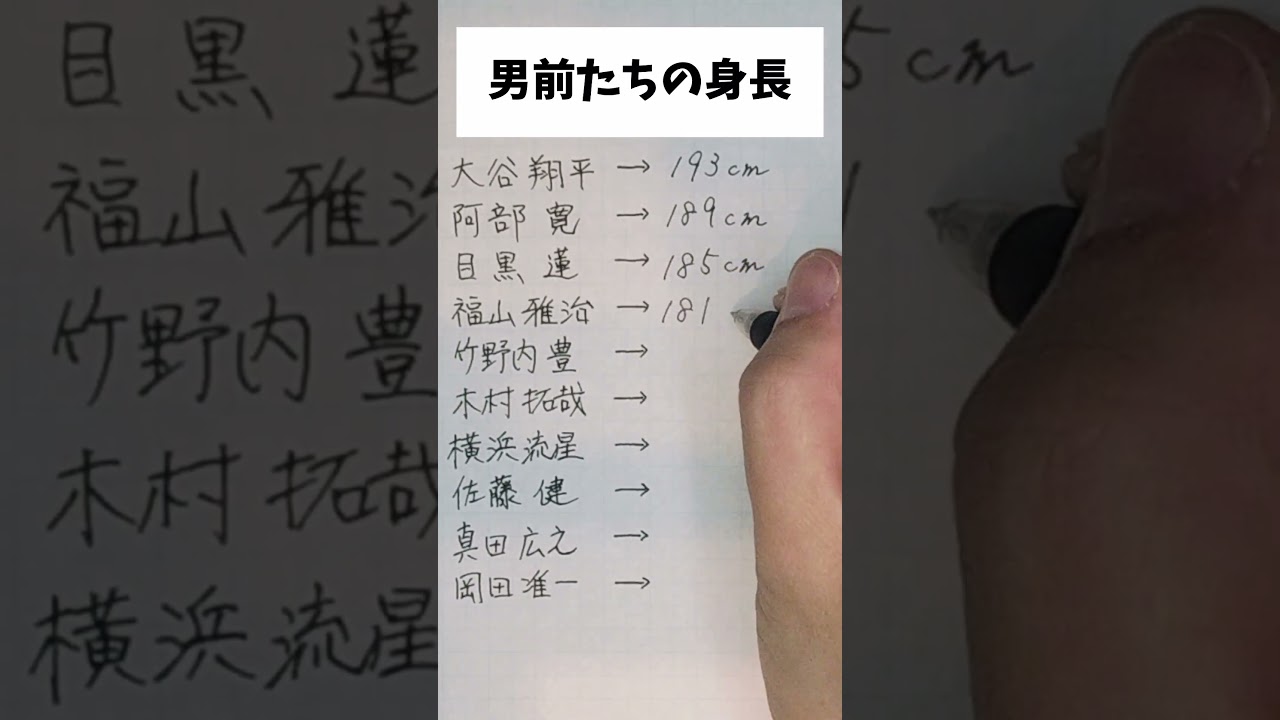 男前たちの身長
大谷翔平 → 193cm
阿部 寛 → 189cm
目黒 蓮 → 185cm
福山雅治 → 181
竹野内 豊 →
木村拓哉 →
横浜流星 →
佐藤 健 →
真田広之 →
岡田准一 →